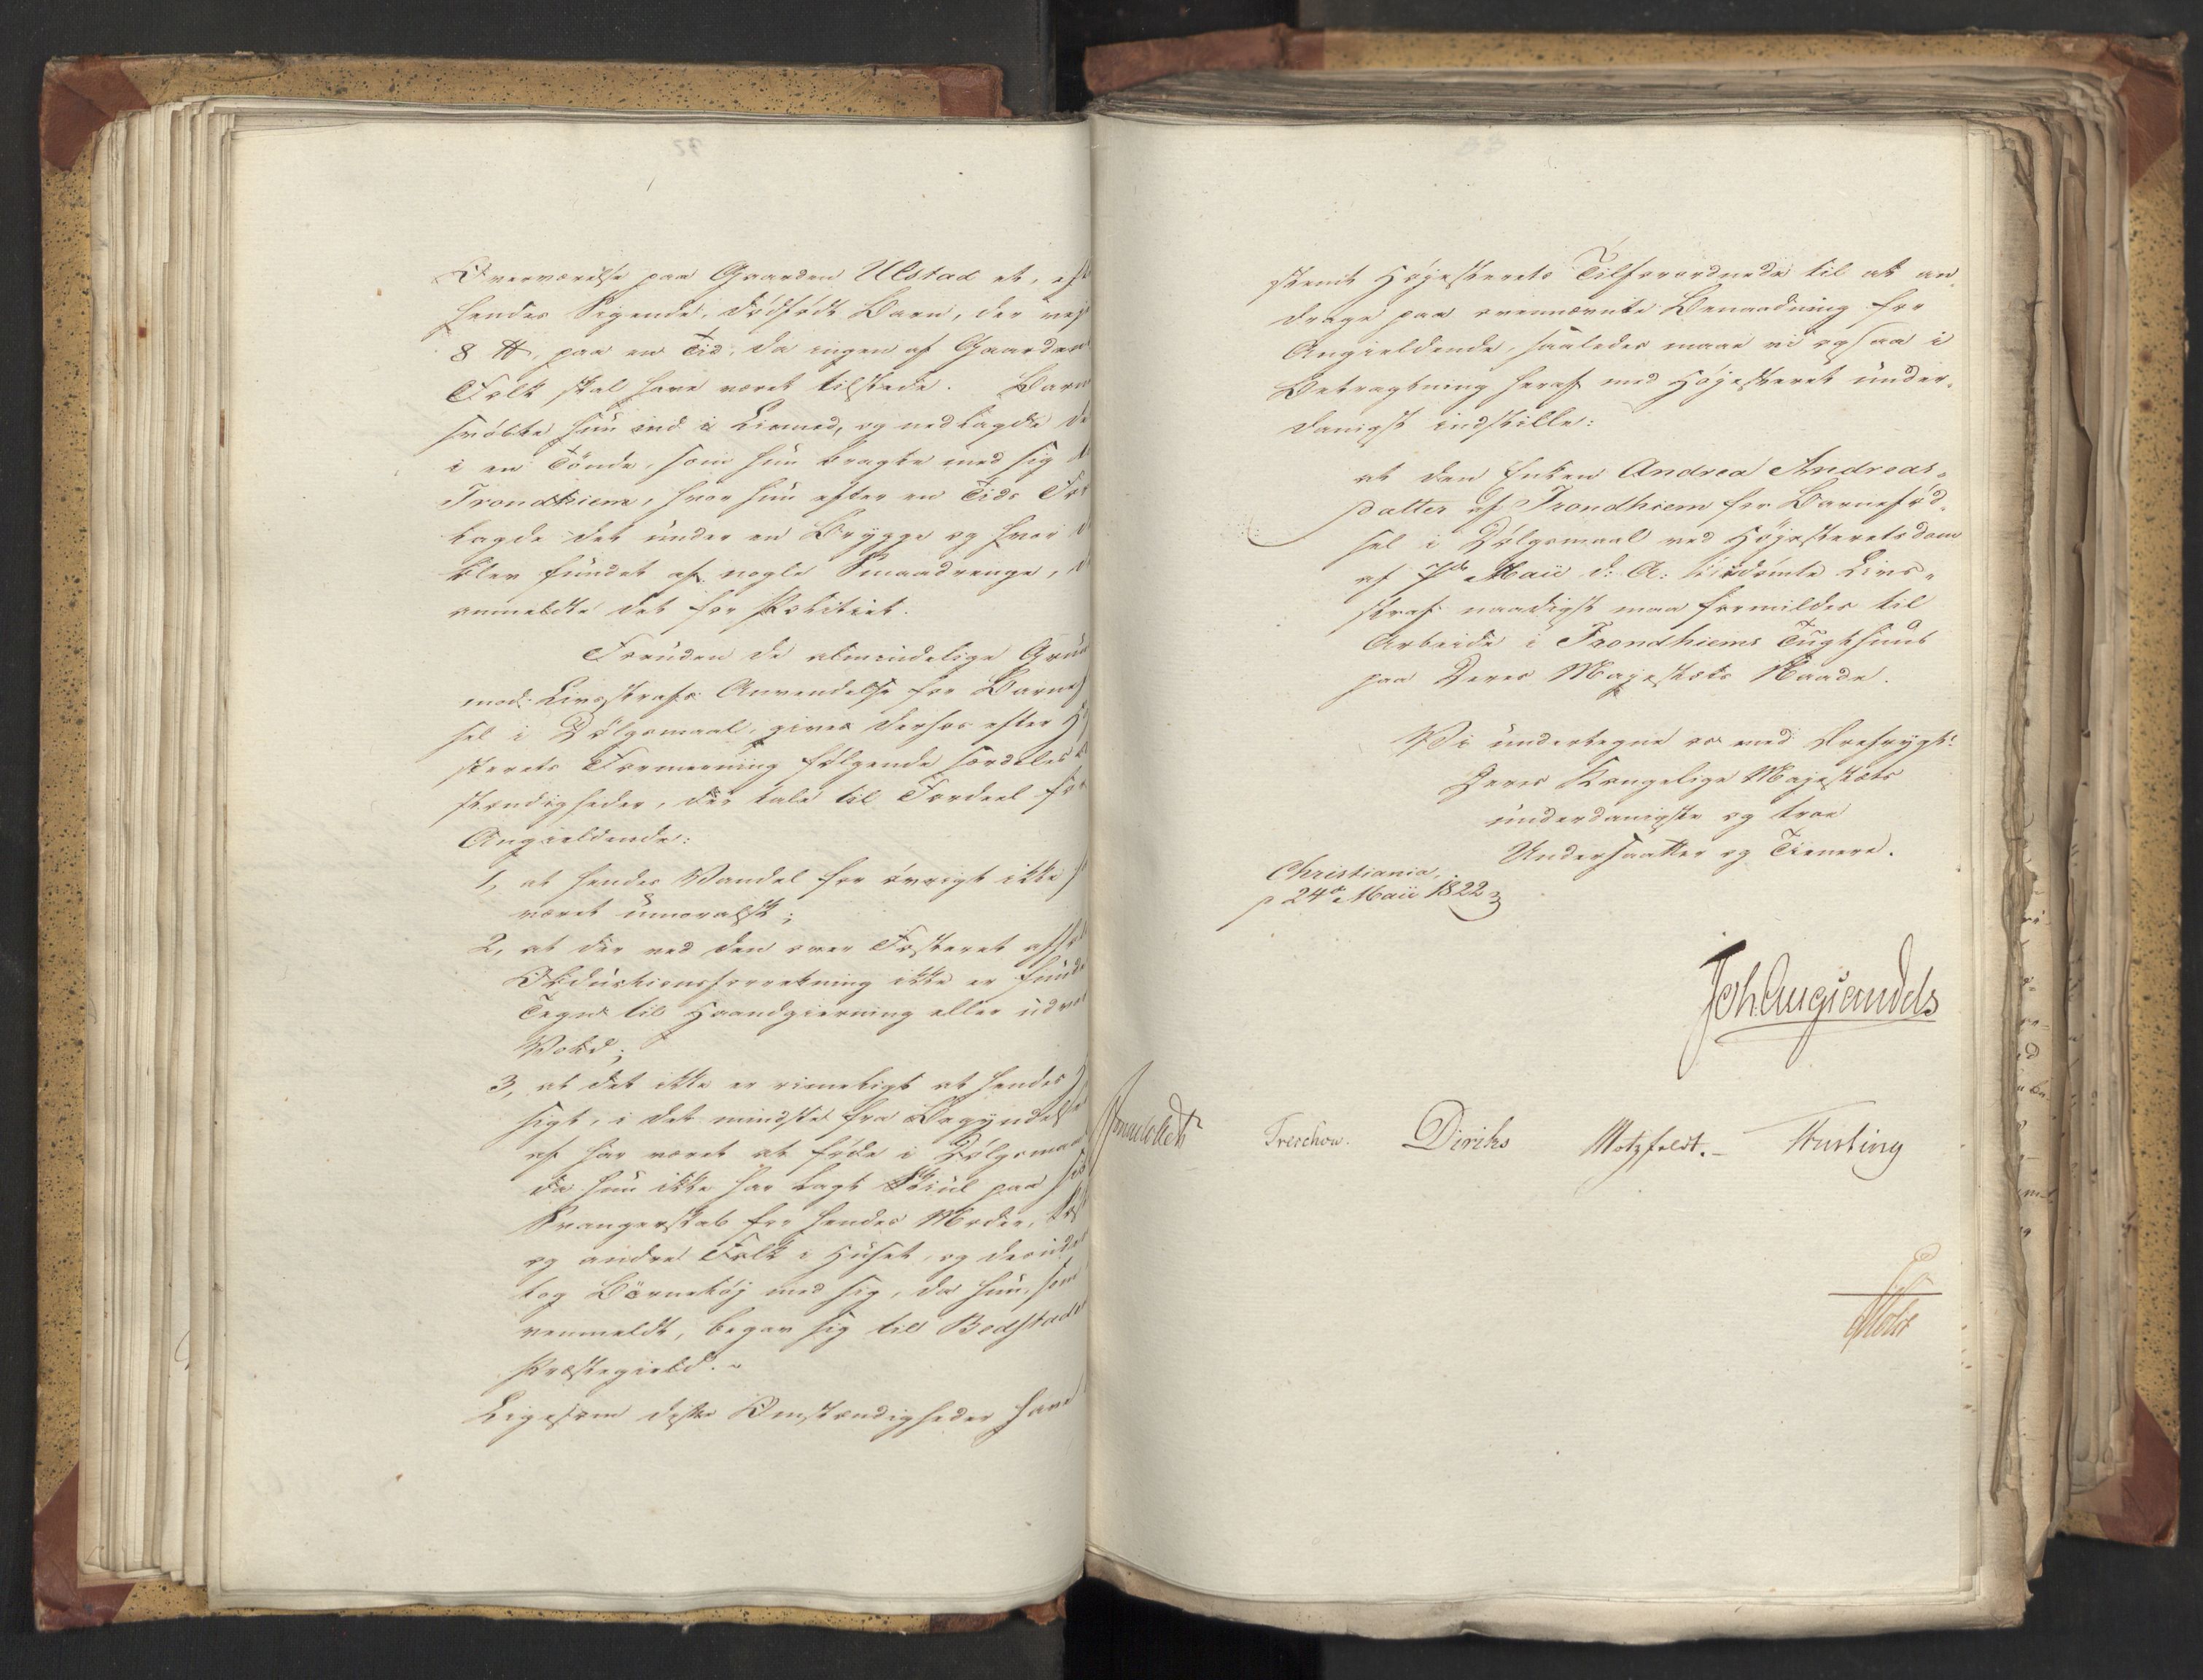 Overværelse paa Gaarden Ulstad et, eft
hendes Sigende, dödfödt Barn, der vej
8 ℔, paa en Tid, da ingen af Gaardens
Folk skal have været tilstede. Barn
svöbte hun ind i Linned, og nedlagde de
i en Tönde, som hun bragte med sig
Trondhiem, hvor hun efter en Tids For
lagde det under en Brygge og hvor d
blev fundet af nogle Smaadrenge,
anmeldte det for Politiet.
Foruden de almindelige Grun
mod Livsstrafs Anvendelse for Barnef
sel i Dölgsmaal, gives derhos efter Hö
sterets Formeening fölgende særdeles
stændigheder, der tale til Fordeel for
Angieldende:
1, at hendes Vandel for övrigt ikke h
været umoralsk;
2, at der ved den over Fosteret afh
Obductionsforretning ikke er funde
Tegn til Haandgierning eller udvor
Vold;
3, at det ikke er rimeligt at hendes H
sigt, i det mindste fra Begyndels
af har været at föde i Dölgsmaa
da hun ikke har lagt Skiul paa sit
Svangerskab for hendes Moder,
og andre Folk i Huset, og desude
tog Börnetöj med sig, da hun, som
venmeldt, begav sig til Bedstads
Præstegield.
Ligesom disse Omstændigheder have
stemt Höjesterets Tilforordnede til at an-
drage paa ovennævnte Benaadning for
Angieldende, saaledes maae vi ogsaa i
Betragtning heraf med Höjesteret under-
danigst indstille:
at den Enken Andrea Andreas-
datter af Trondhiem for Barneföd-
sel i Dölgsmaal ved Höjesteretsdom
af 7de Maii d: A: idömte Livs-
straf naadigst maa formildes til
Arbeide i Trondhiems Tugthuus
paa Deres Majestæts Naade.
Vi undertegne os med Ærefrygt:
Deres Kongelige Majestæts
underdanigste og troe
Undersaatter og Tienere.
Christiania,
d 24de Maii 1822
Joh Aug Sandels
Sommerhielm Treschow. Diriks Motzfeldt. Fasting